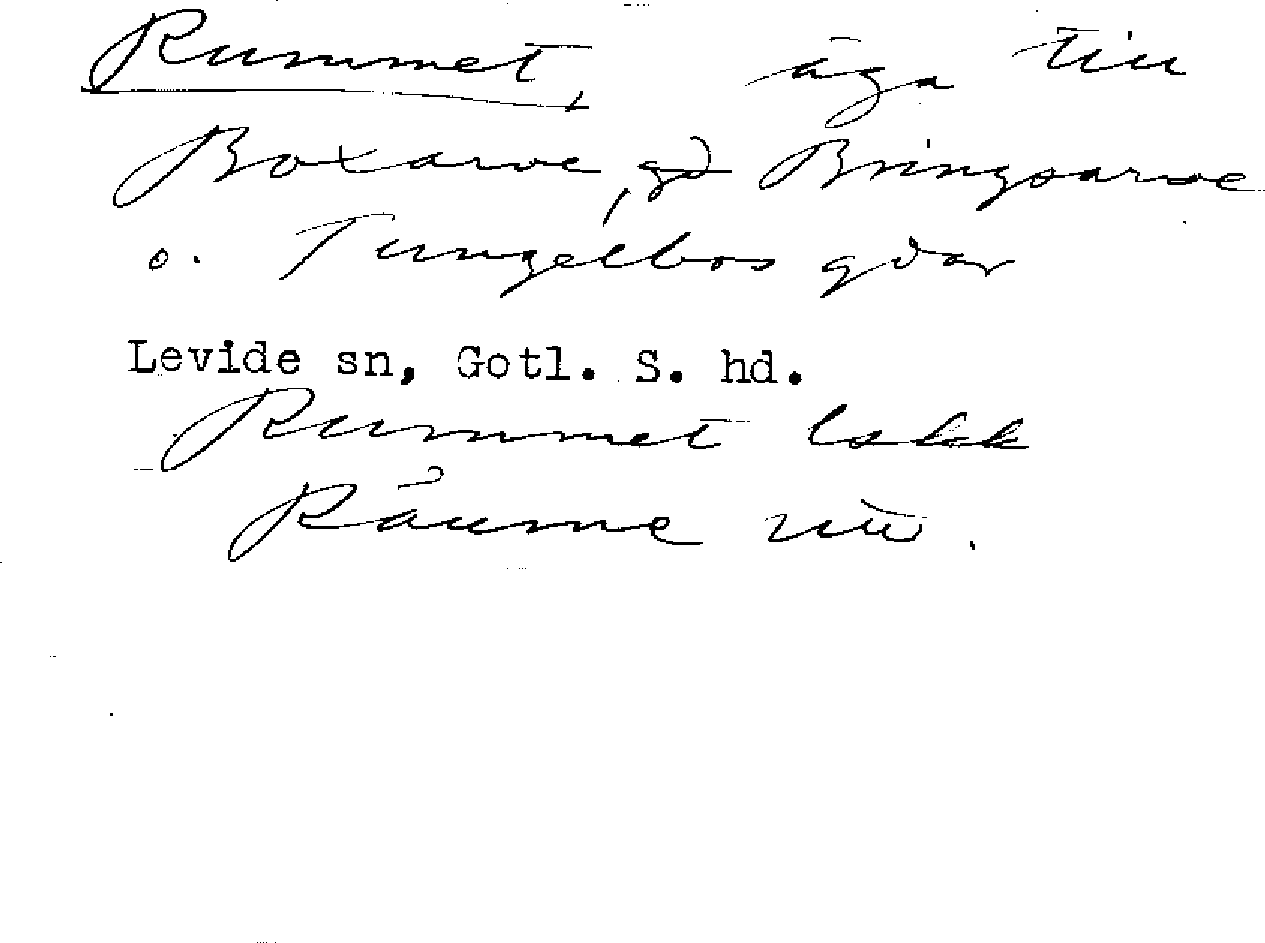 Rummet, äga till
Boxarve, gd Bringsarve
o. Tungelbos gdar
Levide sn, Gotl. S. hd.
Rummet lskk
Råume